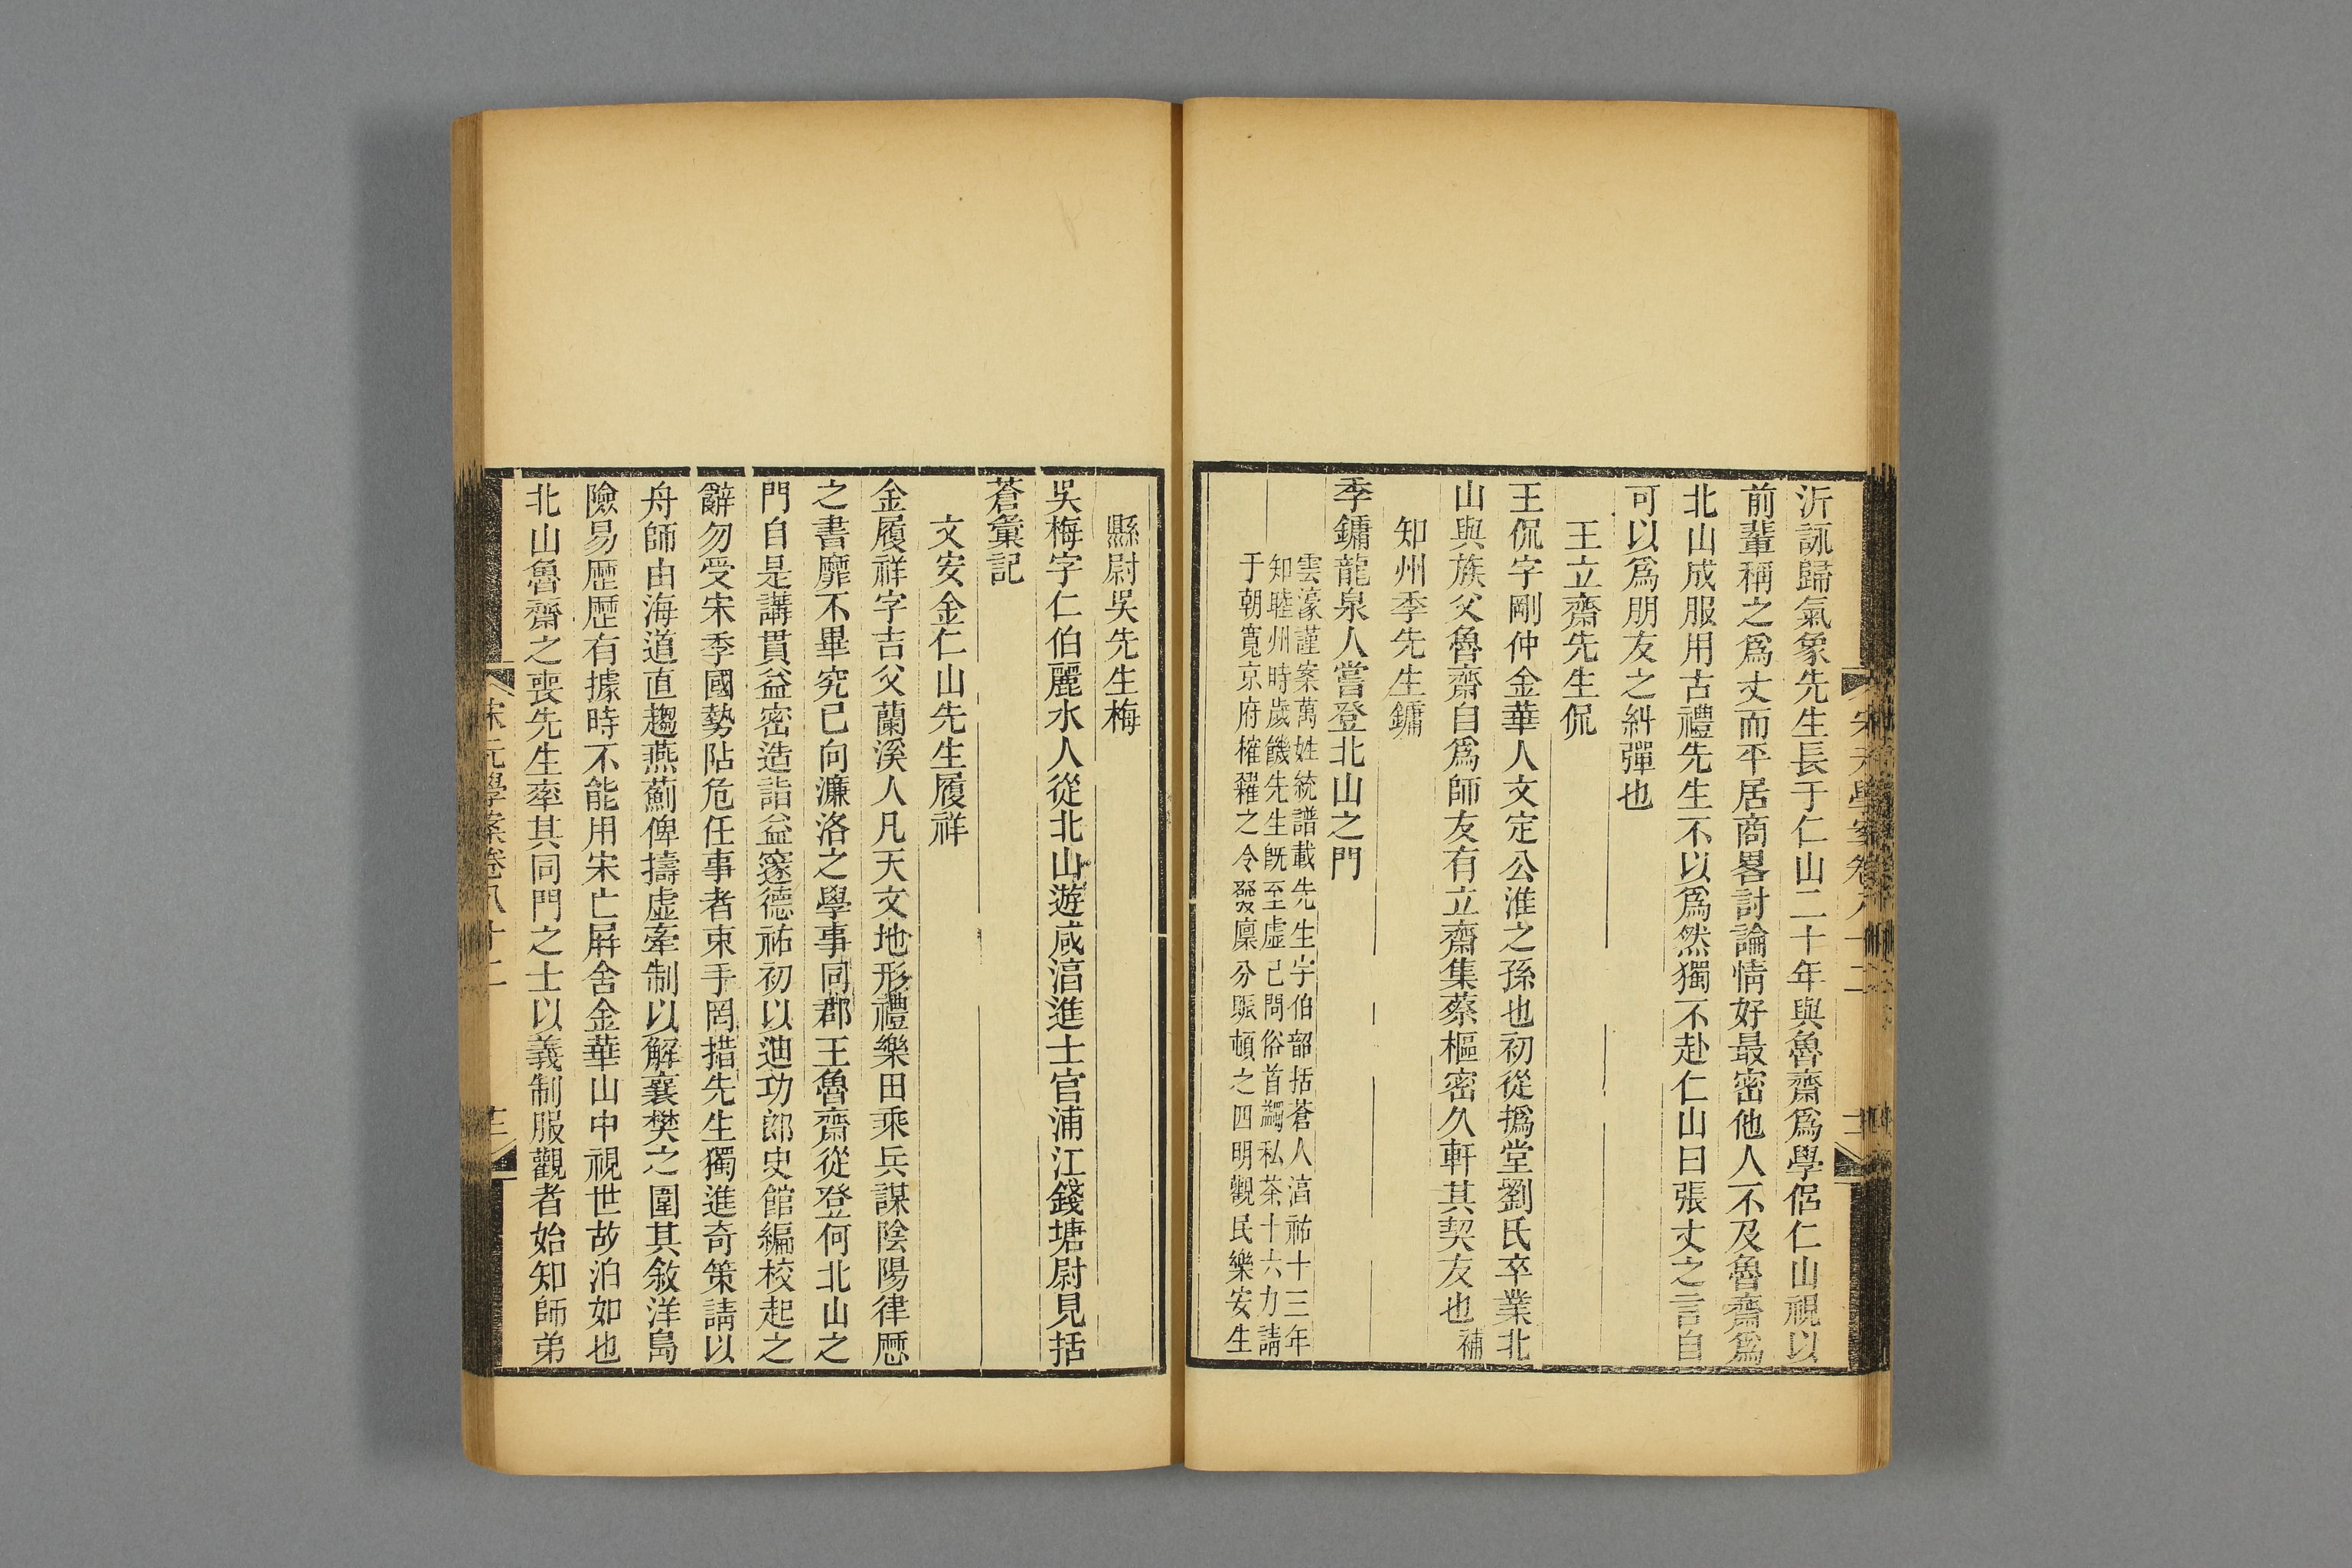 沂詠歸氣象先生長于仁山二十年與魯齋爲學侶仁山視以
前輩稱之爲丈而平居商畧討論情好最密他人不及魯齋爲
北山成服用古禮先生不以爲然獨不赴仁山曰張丈之言自
可以爲朋友之糾彈也
王立齋先生侃
王侃字剛仲金華人文定公淮之孫也初從撝堂劉氏卒業北
山與族父魯齋自爲師友有立齋集蔡樞密久軒其契友也補
知州季先生鏞
季鏞龍泉人嘗登北山之門
雲濠謹案萬姓統譜載先生字伯韶括蒼人淳祐十三年
知睦州時歲饑先生旣至虛己問俗首蠲私茶十六力請
于朝寬京府榷糴之令發廩分賑頓之四明觀民樂安生
縣尉吳先生梅
吳梅字仁伯麗水人從北山遊咸淳進士官浦江錢塘尉見括
蒼彙記
文安金仁山先生履祥
金履祥字吉父蘭溪人凡天文地形禮樂田乘兵謀陰陽律厯
之書靡不畢究已向濂洛之學事同郡王魯齋從登何北山之
門自是講貫益密造詣益邃德祐初以迪功郎史館編校起之
辭勿受宋季國勢阽危任事者束手罔措先生獨進奇策請以
舟師由海道直趨燕薊俾擣虛牽制以解襄樊之圍其敘洋島
險易歷歷有據時不能用宋亡屏舍金華山中視世故泊如也
北山魯齋之喪先生率其同門之士以義制服觀者始知師弟
宋元學案卷八十二